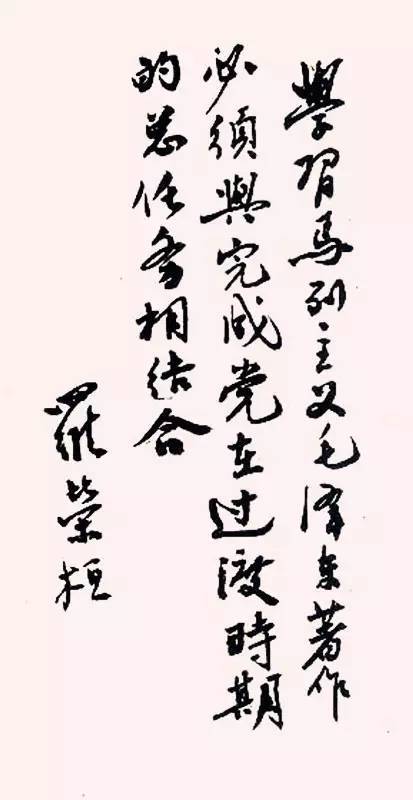 學習马列主义毛泽东著作
必須與完成党在过渡時期
的总任务相结合
羅榮桓